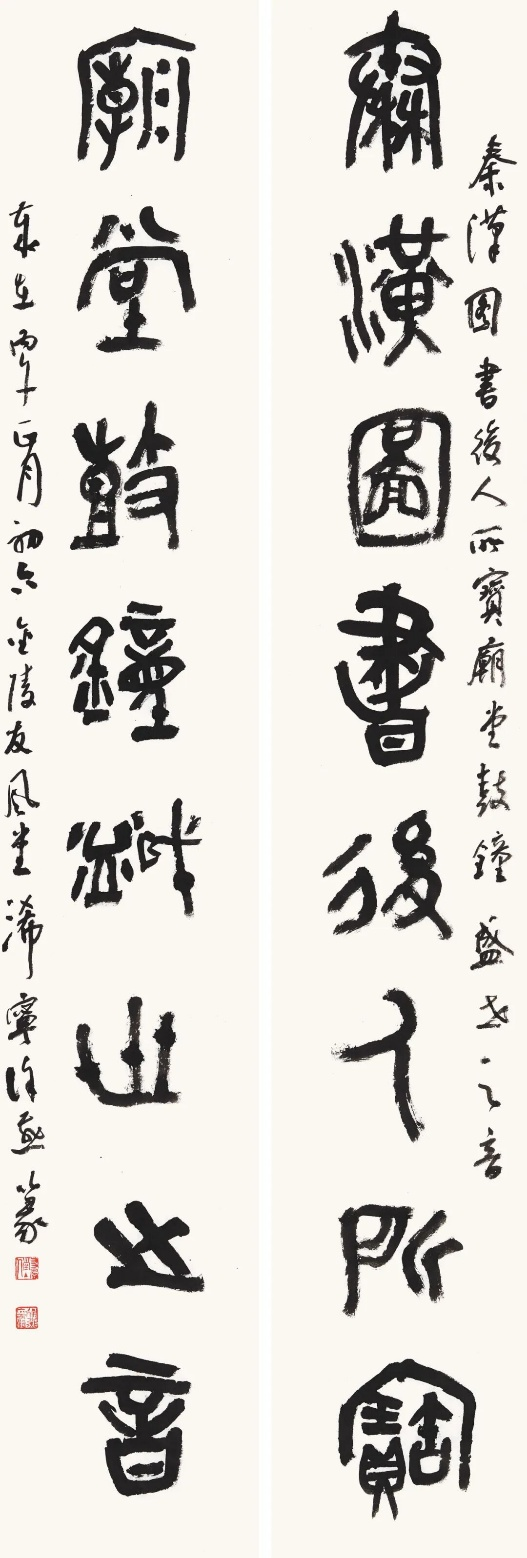 秦漢圖書後人所寶廟堂鼓鐘盛世之音
秦漢圖書後人所寶
廟堂鼓鐘盛世之音
歲在丙午正月初六金陵友風堂浠寧徐燕篆